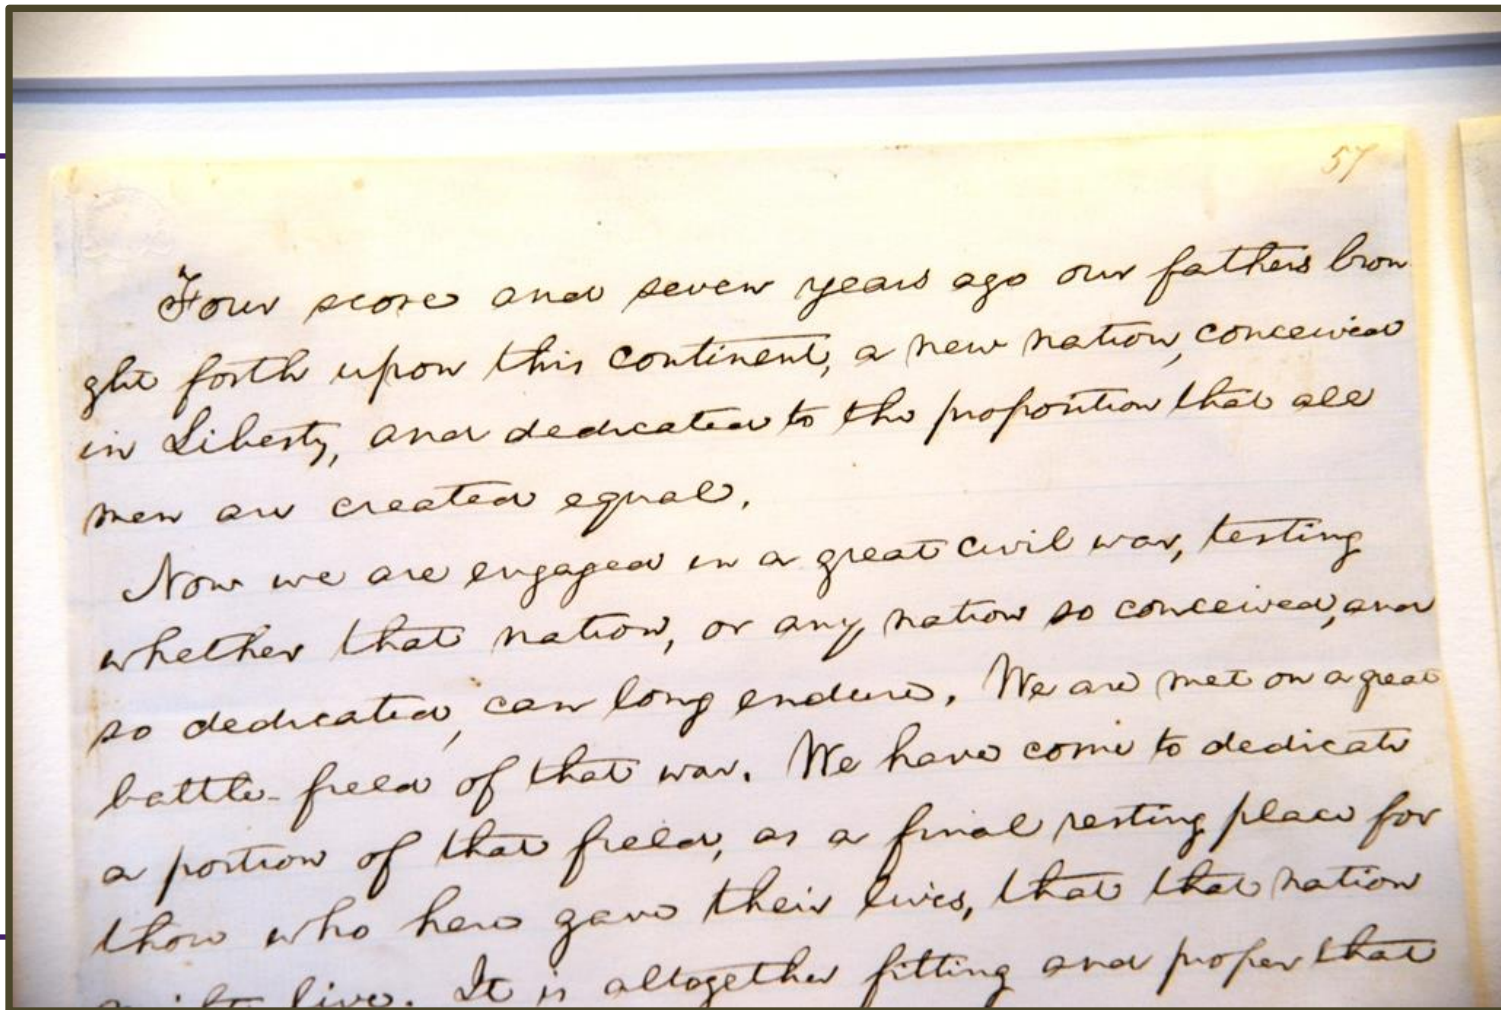 57
Four score and seven years ago our fathers brou-
ght forth upon this continent, a new nation, conceived
in Liberty, and dedicated to the proposition that all
men are created equal.
Now we are engaged in a great civil war, testing
whether that nation, or any nation so conceived, and
so dedicated, can long endure. We are met on a great
battle-field of that war. We have come to dedicate
a portion of that field, as a final resting place for
those who here gave their lives, that that nation
might live. It is altogether fitting and proper that